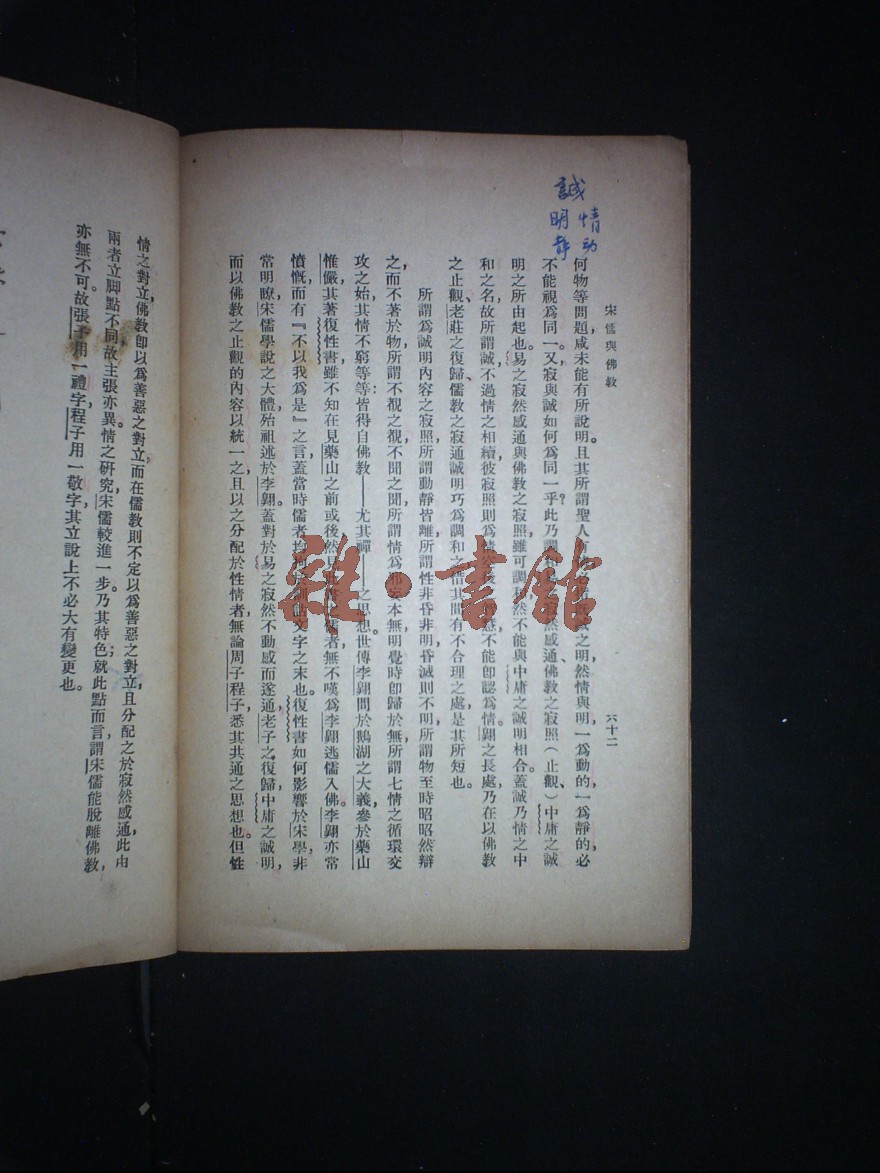 宋儒與佛教
六十二
情動
誠明靜
何物等問題，咸未能有所說明。且其所謂聖人之明然情與明，一爲動的，一爲靜的，必
不能視爲同一。又寂與誠如何爲同一乎？此乃調和易之寂然感通、佛教之寂照（止觀）、中庸之誠
明之所由起也。易之寂然感通與佛教之寂照，雖可調和，然不能與中庸之誠明相合。蓋誠乃情之中
和之名，故所謂誠，不過情之相續，彼寂照則爲不能卽認爲情。翺之長處，乃在以佛教
之止觀、老莊之復歸、儒教之寂通誠明巧爲調和之，惜其間有不合理之處，是其所短也。
所謂爲誠明內容之寂照，所謂動靜皆離，所謂性非昏非明，昏滅則不明，所謂物至時昭昭然辯
之而不著於物，所謂不覩之覩，不聞之聞，所謂情爲邪妄，本無明覺時卽歸於無，所謂七情之循環交
攻之始，其情不窮等等：皆得自佛教——尤其禪——之思想。世傳李翺問於鵝湖之大義，參於藥山
惟儼，其著復性書雖不知在見藥山之前或後，然見者無不嘆爲李翺逃儒入佛。李翺亦常
憤慨而有『不以我爲是』之言，蓋當時儒者均拘於訓詁文字之末也。復性書如何影響於宋學，非
常明瞭，宋儒學說之大體殆祖述於李翺。蓋對於易之寂然不動感而遂通，老子之復歸，中庸之誠明，
而以佛教之止觀的內容以統一之，且以之分配於性情者，無論周子程子，悉其共通之思想也。但性
情之對立，佛教卽以爲善惡之對立，而在儒教則不定以爲善惡之對立，且分配之於寂然感通，此由
兩者立脚點不同，故主張亦異。情之研究，宋儒較進一步，乃其特色；就此點而言，謂宋儒能脫離佛教，
亦無不可。故張子用一禮字，程子用一敬字，其立說上不必大有變更也。
雜·書館